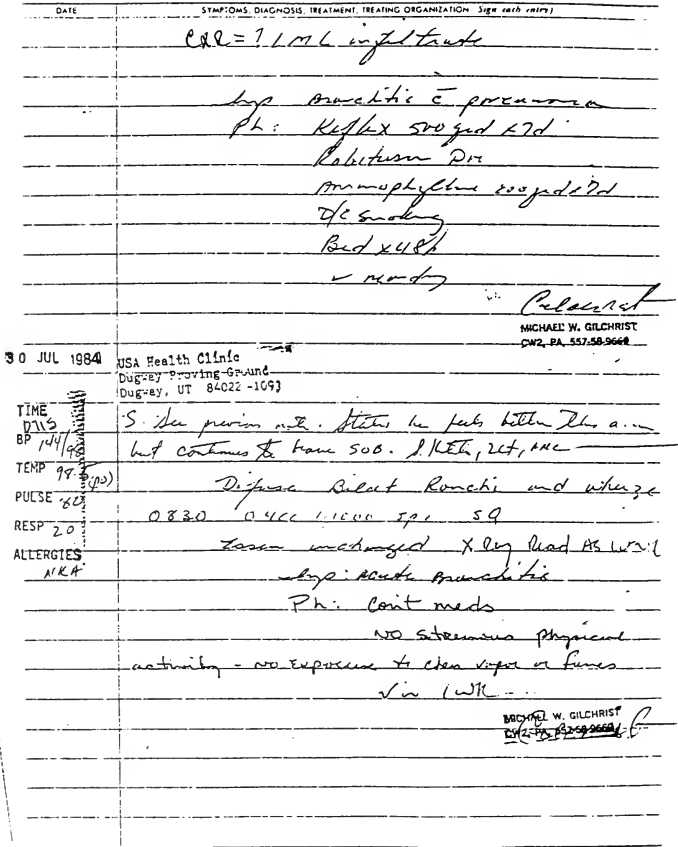 DATE SYMPTOMS, DIAGNOSIS, TREATMENT, TREATING ORGANIZATION (Sign each entry)
CXR = ? LML infiltrate
Imp Bronchitis c̄ pneumonia
Ph: Keflex 500 qid x7d
Robitussin DM
Ammophylline 200 qid x7d
D/C smoking
Bed x 48h
✓ monday
MICHAEL W. GILCHRIST
CW2, PA, 557-58-9660
30 JUL 1984 USA Health Clinic
Dugway Proving Ground
Dugway, UT 84022-1093
TIME 0715
BP 144/98
TEMP 98.5 (po)
PULSE 80
RESP 20
ALLERGIES
NKA
S: See previous note. States he feels better this a.m
but continues to have SOB.
Difuse Bilat Ronchi and wheeze
0830 0.4cc 1:1000 epi SQ
unchanged X Ray Read AS WNL
Imp: Acute Bronchitis
Ph: Cont meds
NO strenous physical
activity - NO Exposure to chem vapor or fumes
✓ in 1 WK
MICHAEL W. GILCHRIST
CW2, PA, 557-58-9660